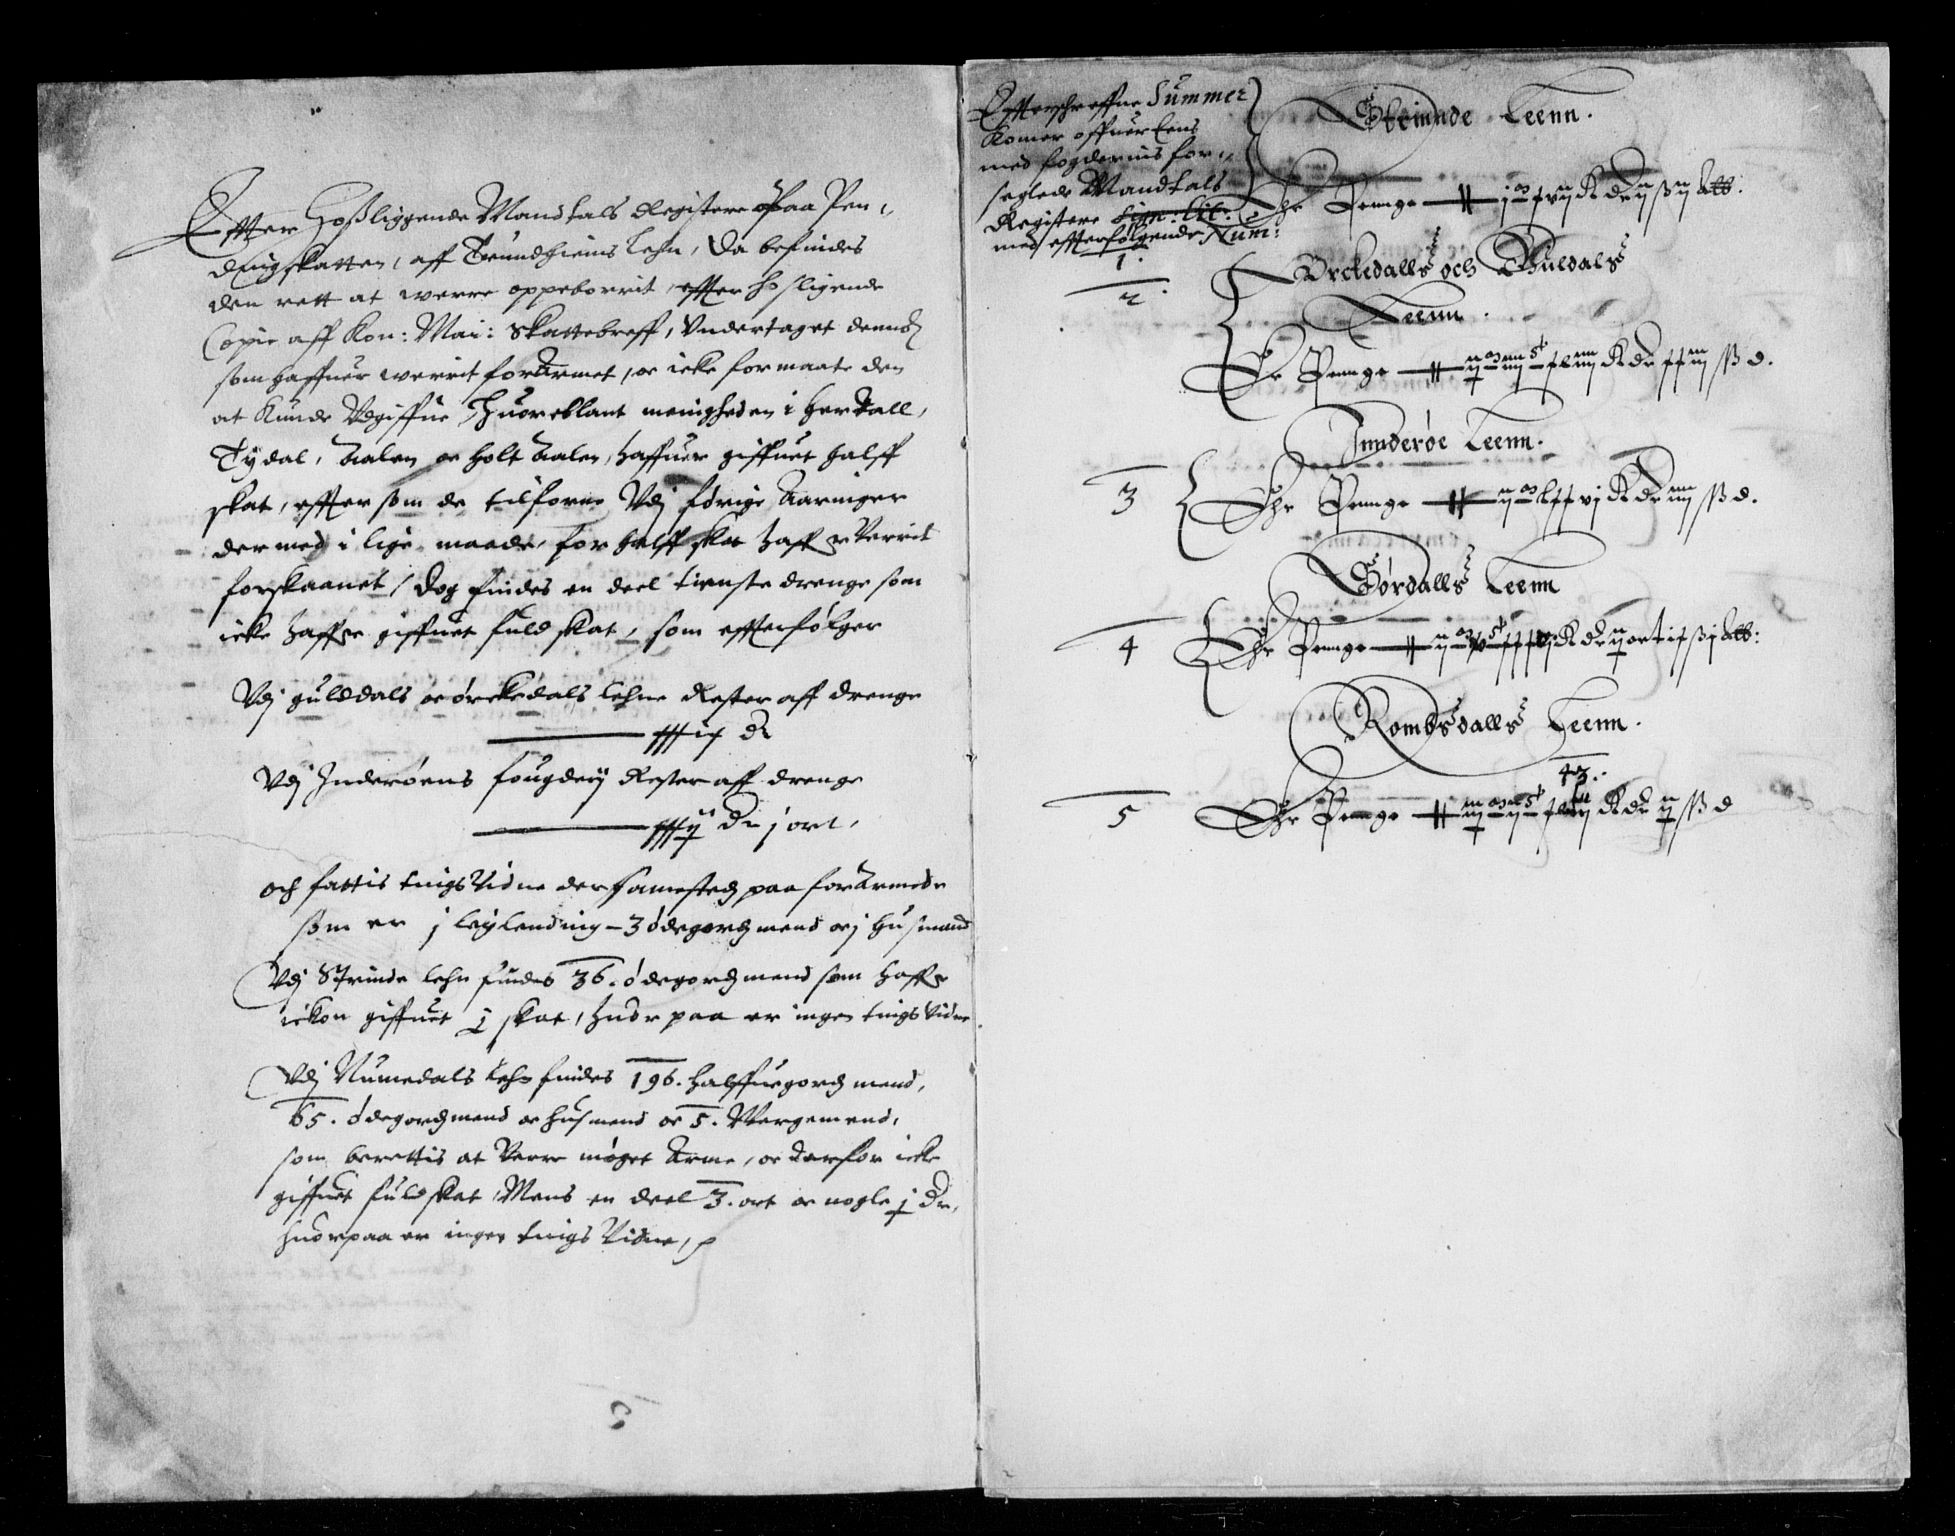 Effter Hoßliggende Mandtals Registere Paa Pen,,
dingskatten, aff Trundhiems Lehn, Da befindes
den rett at werre oppeborrit, effter hosligende
Copie aff Kon: Mai: Skattebreff, Vndertaget
som haffuer werrit forarmet, oc icke formaate den
at Kunde Vdgiffue, Huoreblant menigheden i Herdall,
Tydal, Aalen oc Holt Aalen, haffuer giffuet halff
skat, effter som de tilforne Vdj forige Aaringer
dermed i lige maade, for halff skat haffr Verrit
forskaanet, Dog findes en deel tienste drenge som
icke haffr giffuet fuld skat, som effterfølger
Vdj guldals oc ørckedals lehne Rester aff drenge
Vdj Inderøens fougderij Rester aff drenge
dr j ort,
och fattis tings Vidne der samested paa forarmede
som er j leylending – 3 ødegord mend oc j husmand
Vdj Strinde lehn findes 36. ødegord mend som haffr
ickon giffuet skat, huor paa er ingen tings Vidne
Vdj Numedals Lehn findes 196. halffuegord mend,
65. ødegord mend oc husmend oc 5. Wergemend,
som berettis at Verre møget Arme, oc darfor icke
giffuet fuld skat, Mens en deel 3. ort oc nogle dr,
huorpaa er ingen tings Vidne,
Effterschreffne Summer
Komer offuer Eens
med fogdernis for,,
seglede Mandtals
Registere Sign: Lit:
med effterfølgende Num:
Strinnde Leenn.
1.
Er Penge
2.
Orckedalls och Guldals
Leenn.
Er Penge
Innderøe Leenn.
3
Er Penge
Størdalls Leenn
4
Er Penge
Rombsdalls Leenn.
43.
5
Er Penge